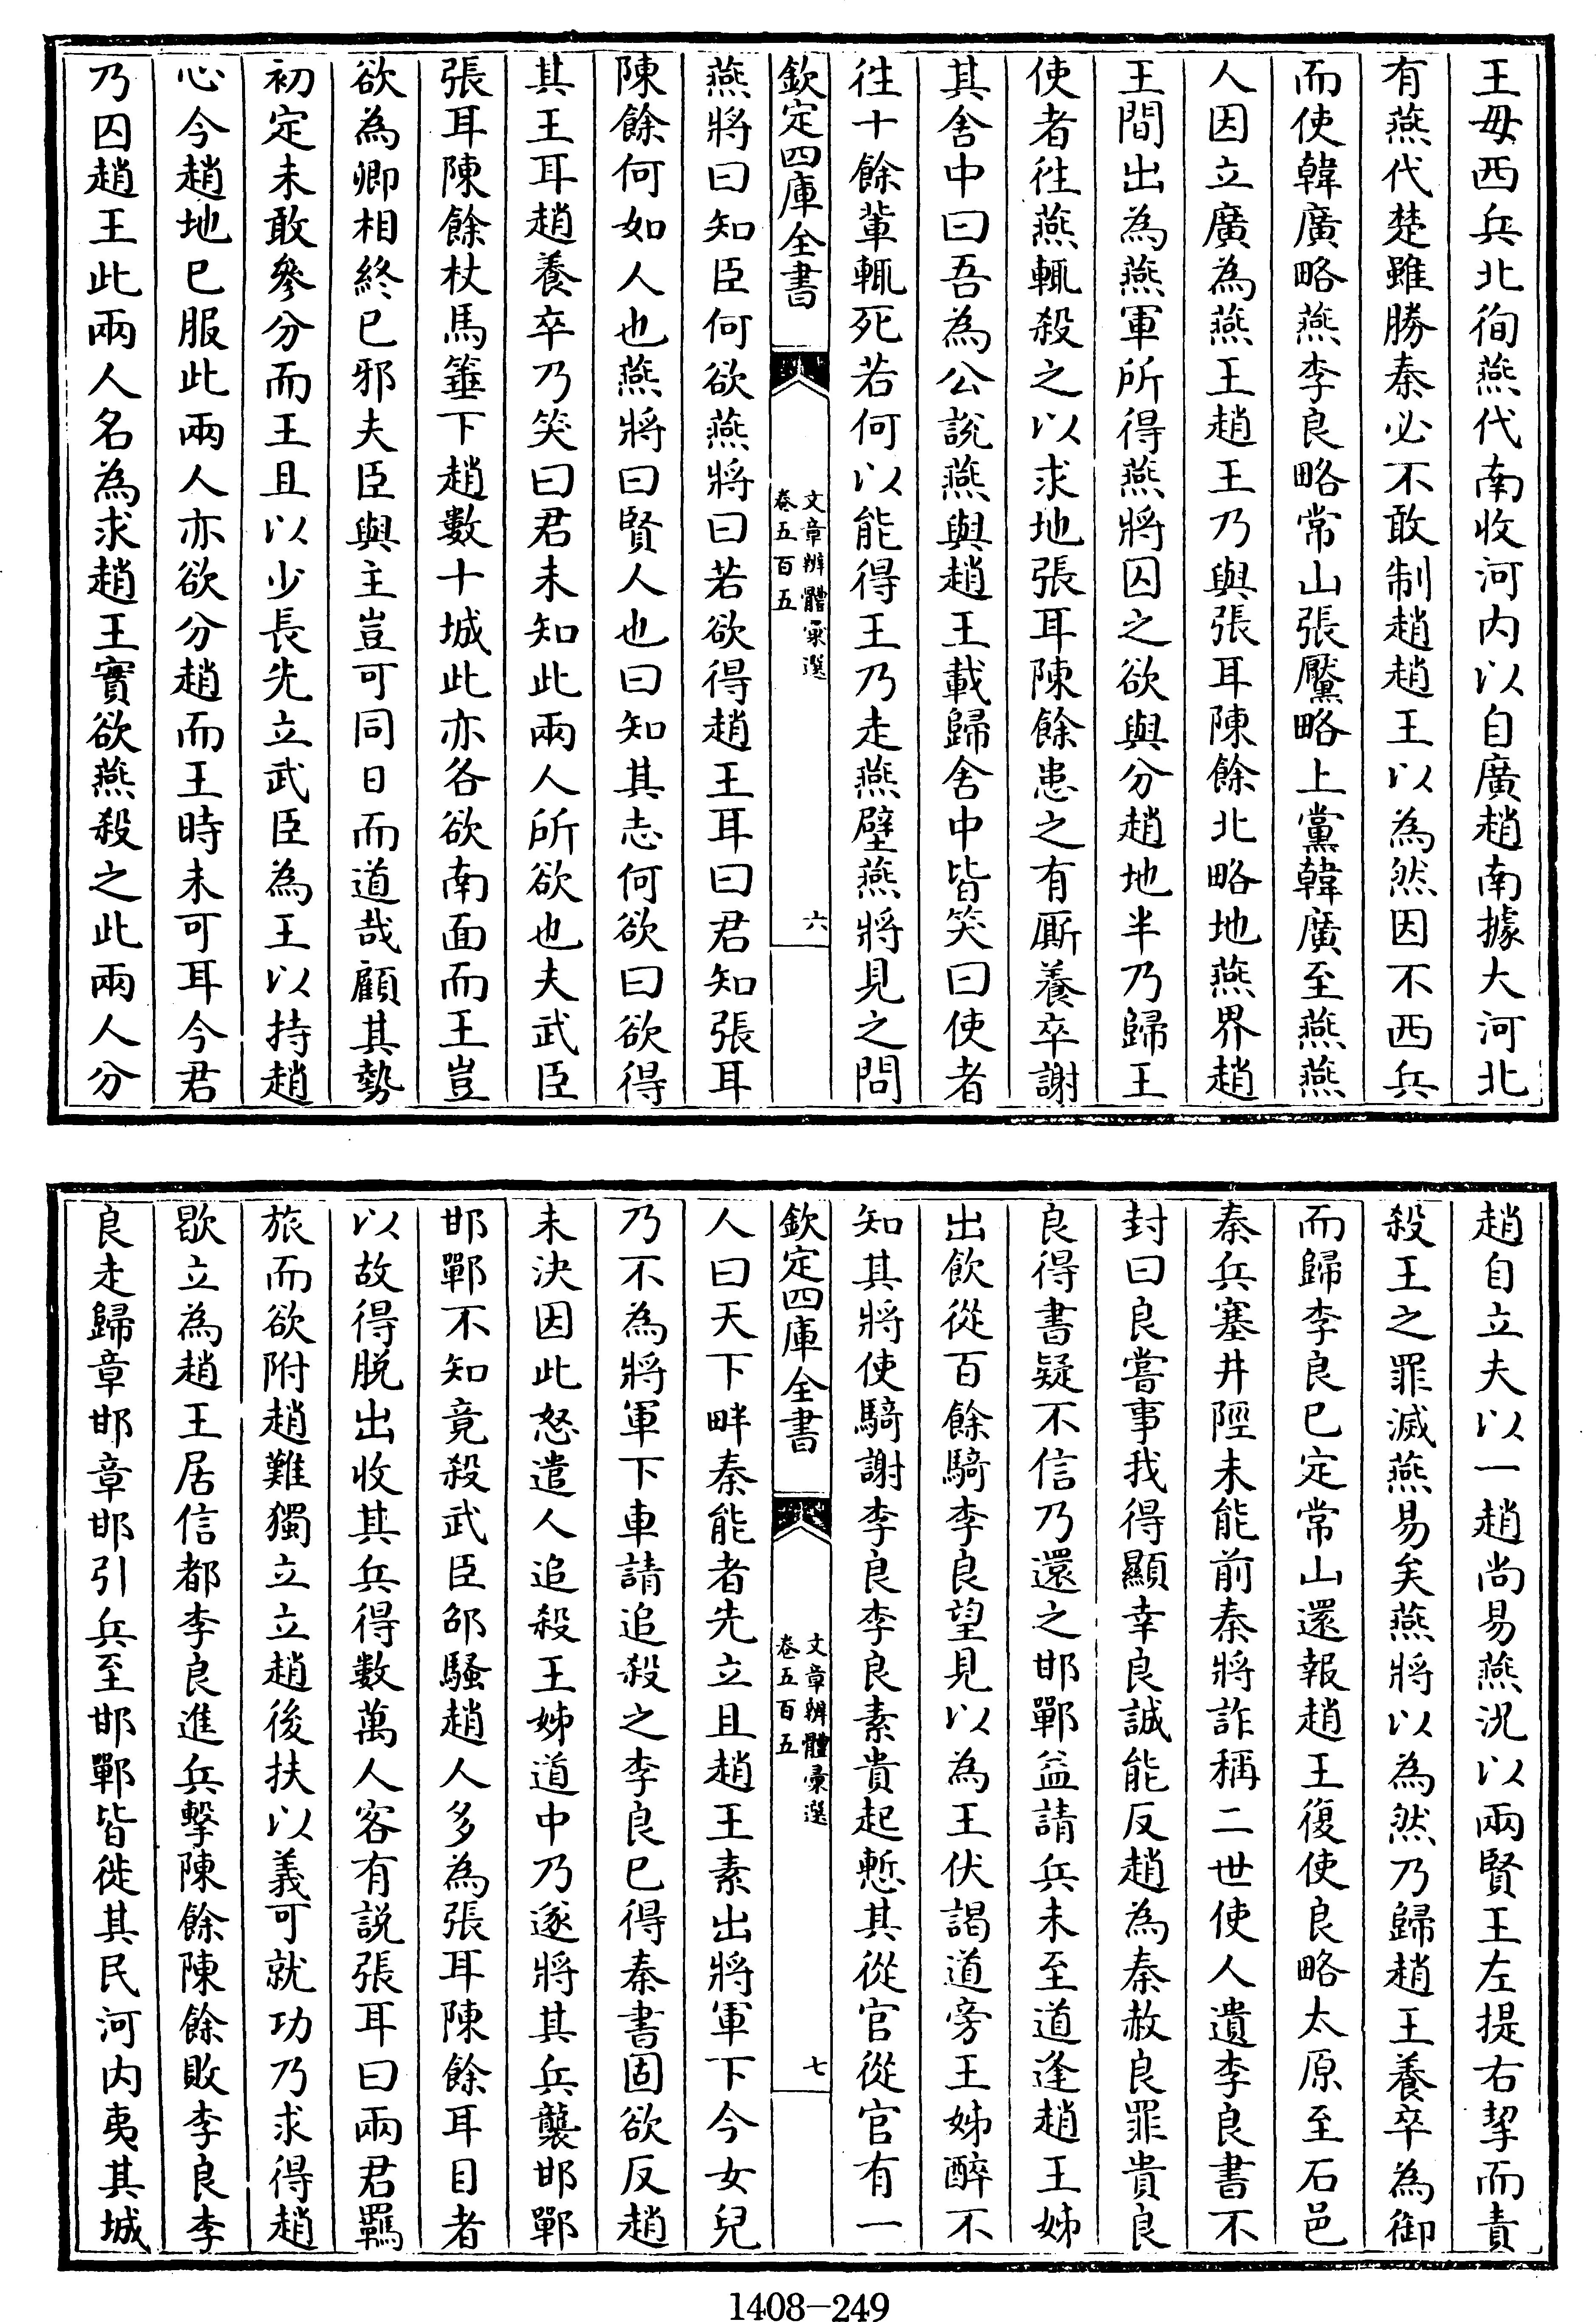 王毋西兵北徇燕代南收河内以自廣趙南據大河北
有燕代楚雖勝秦必不敢制趙趙王以為然因不西兵
而使韓廣略燕李良略常山張黶略上黨韓廣至燕燕
人因立廣為燕王趙王乃與張耳陳餘北略地燕界趙
王間出為燕軍所得燕將囚之欲與分趙地半乃歸王
使者往燕輒殺之以求地張耳陳餘患之有厮養卒謝
其舍中曰吾為公說燕與趙王載歸舍中皆笑曰使者
往十餘輩輒死若何以能得王乃走燕壁燕將見之問
欽定四庫全書
文章辨體彚選
卷五百五
六
燕將曰知臣何欲燕將曰若欲得趙王耳曰君知張耳
陳餘何如人也燕將曰賢人也曰知其志何欲曰欲得
其王耳趙養卒乃笑曰君未知此兩人所欲也夫武臣
張耳陳餘杖馬箠下趙數十城此亦各欲南面而王豈
欲為卿相終已邪夫臣與主豈可同日而道哉顧其勢
初定未敢參分而王且以少長先立武臣為王以持趙
心今趙地已服此兩人亦欲分趙而王時未可耳今君
乃囚趙王此兩人名為求趙王實欲燕殺之此兩人分
趙自立夫以一趙尚易燕況以兩賢王左提右挈而責
殺王之罪滅燕易矣燕將以為然乃歸趙王養卒為御
而歸李良已定常山還報趙王復使良略太原至石邑
秦兵塞井陘未能前秦將詐稱二世使人遺李良書不
封曰良嘗事我得顯幸良誠能反趙為秦赦良罪貴良
良得書疑不信乃還之邯鄲益請兵未至道逢趙王姊
出飲從百餘騎李良望見以為王伏謁道旁王姊醉不
知其將使騎謝李良李良素貴起慙其從官從官有一
欽定四庫全書
文章辨體彙選
卷五百五
七
人曰天下畔秦能者先立且趙王素出將軍下今女兒
乃不為將軍下車請追殺之李良已得秦書固欲反趙
未決因此怒遣人追殺王姊道中乃遂將其兵襲邯鄲
邯鄲不知竟殺武臣邵騷趙人多為張耳陳餘耳目者
以故得脱出收其兵得數萬人客有説張耳曰兩君羈
旅而欲附趙難獨立立趙後扶以義可就功乃求得趙
歇立為趙王居信都李良進兵擊陳餘陳餘敗李良李
良走歸章邯章邯引兵至邯鄲皆徙其民河内夷其城
1408-249